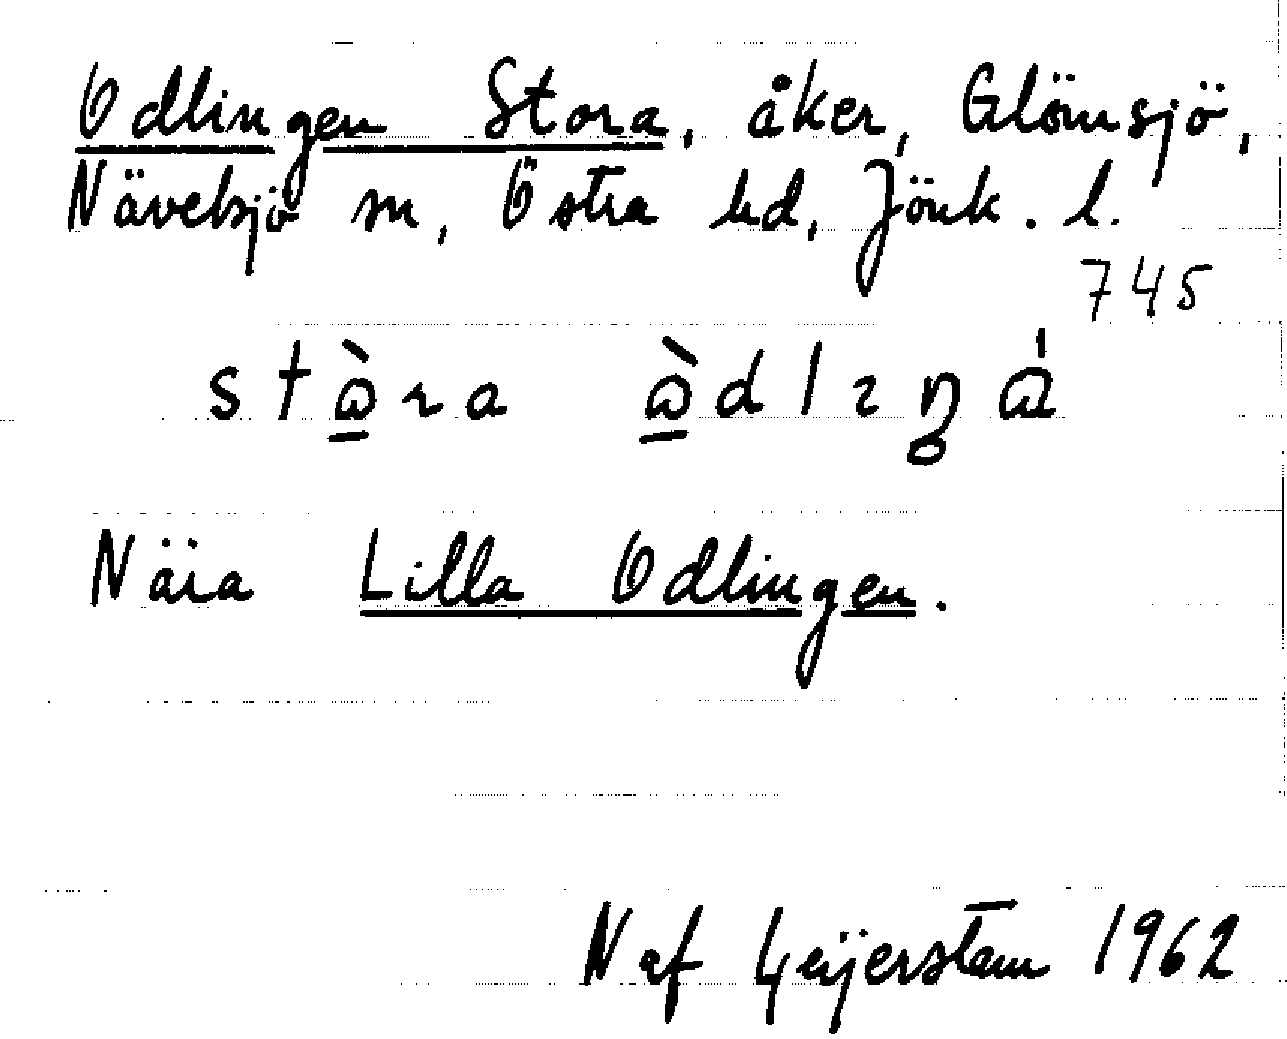 Odlingen Stora, åker, Glömsjö,
Nävelsjö sn, Östra hd, Jönk. l.
745
Nära Lilla Odlingen.
N af Geijerstam 1962